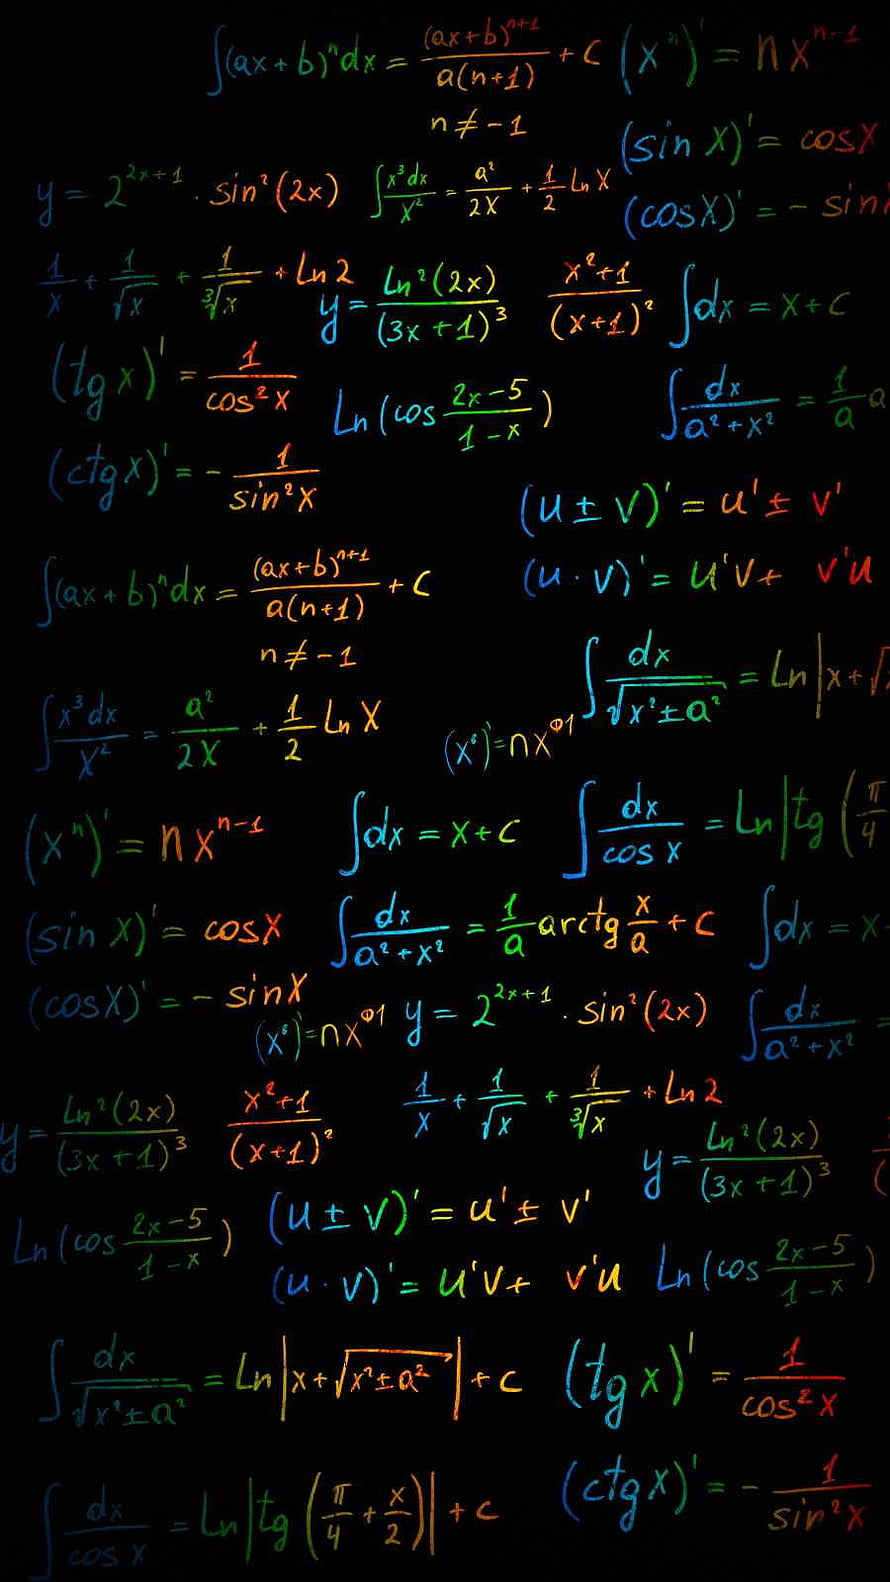 ∫(ax+b)ⁿdx = (ax+b)ⁿ⁺¹/a(n+1) + C
n ≠ -1
(xⁿ)' = nxⁿ⁻¹
(sin x)' = cosx
(cosx)' = - sin
y = 2²ˣ⁺¹ · sin²(2x)
∫x³dx/x² = a²/2x + 1/2 Ln x
1/x + 1/√x + 1/∛x + Ln2
y = Ln²(2x)/(3x+1)³
x²+1/(x+1)²
∫dx = x+c
(tg x)' = 1/cos²x
Ln(cos 2x-5/1-x)
∫dx/a²+x² = 1/a a
(ctg x)' = - 1/sin²x
(u ± v)' = u' ± v'
(u · v)' = u'v + v'u
∫(ax+b)ⁿdx = (ax+b)ⁿ⁺¹/a(n+1) + C
n ≠ -1
∫dx/√x²±a² = Ln|x+√
∫x³dx/x² = a²/2x + 1/2 Ln x
(xⁿ)' = nxⁿ⁻¹
∫dx = x+c
∫dx/cos x = Ln|tg(π/4
(sin x)' = cosx
∫dx/a²+x² = 1/a arctg x/a + C
∫dx = x
(cosx)' = - sinx
y = 2²ˣ⁺¹ · sin²(2x)
∫dx/a²+x² =
y = Ln²(2x)/(3x+1)³
x²+1/(x+1)²
1/x + 1/√x + 1/∛x + Ln2
y = Ln²(2x)/(3x+1)³
Ln(cos 2x-5/1-x)
(u ± v)' = u' ± v'
(u · v)' = u'v + v'u
Ln(cos 2x-5/1-x)
∫dx/√x²±a² = Ln|x+√x²±a²| + c
(tg x)' = 1/cos²x
∫dx/cos x = Ln|tg(π/4 + x/2)| + c
(ctg x)' = - 1/sin²x